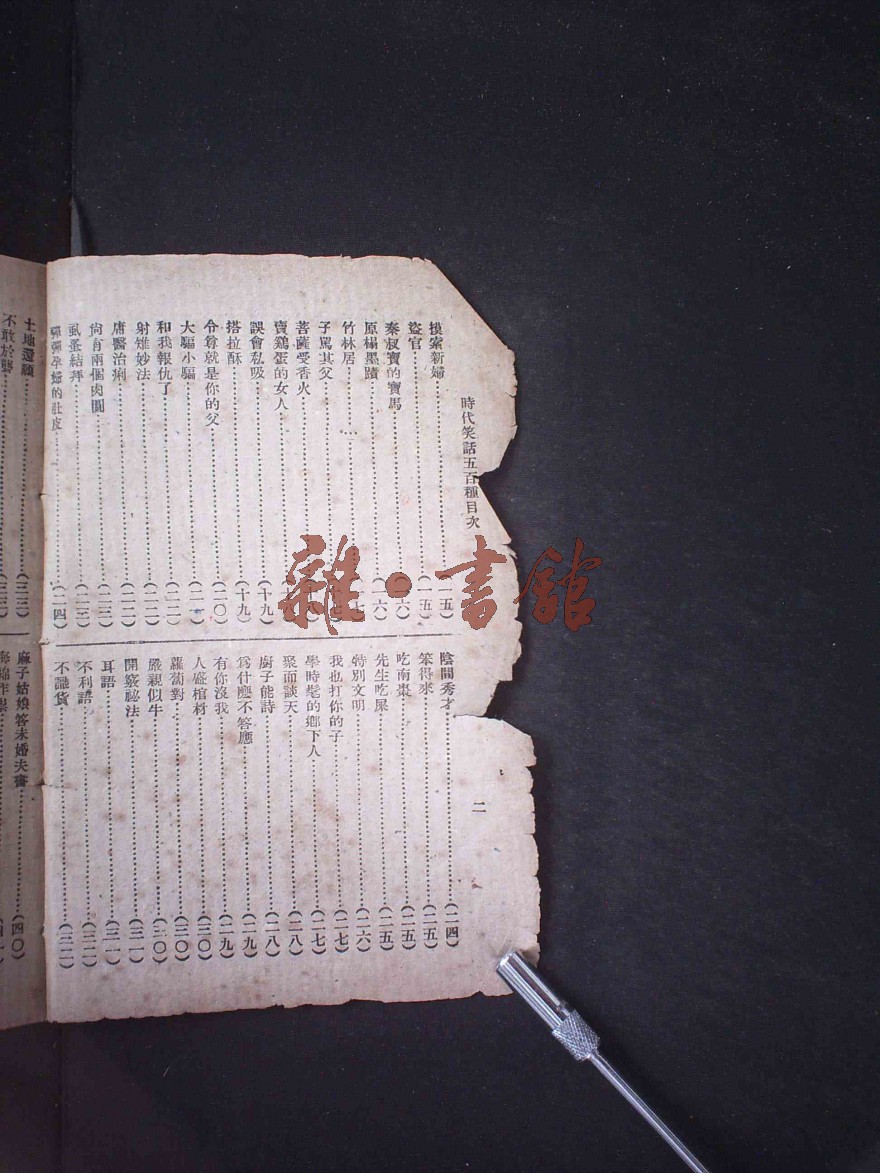 時代笑話五百種目次
二
摸索新婦……(一五)
盜官……(一五)
秦叔寶的寶馬……(六)
原榻墨蹟……(一六)
竹林居……
子罵其父……
菩薩受香火……
賣鷄蛋的女人……
誤會私吸……(十九)
搭拉酥……(十九)
令尊就是你的父……(二〇)
大騙小騙……(二一)
和我報仇了……(二一)
射雉妙法……(二二)
庸醫治痢……(二二)
尙有兩個肉圓……(二三)
虱蚤結拜……(二三)
彈彈孕婦的肚皮……(二四)
陰間秀才……(二四)
笨得來……(二五)
吃南棗……(二五)
先生吃屎……(二五)
特別文明……(二六)
我也打你的子……(二七)
學時髦的鄉下人……(二七)
聚而談天……(二八)
廚子能詩……(二八)
爲什麼不答應……(二九)
有你沒我……(二九)
人盛棺材……(三〇)
蘿蔔對……(三〇)
嚴親似牛……(三〇)
開竅祕法……(三一)
耳語……(三一)
不利語……(三二)
不識貨……(三二)
土地還願……(三三)
不敢於聾……(三三)
麻子姑娘答未婚夫書……(四〇)
雜·書館